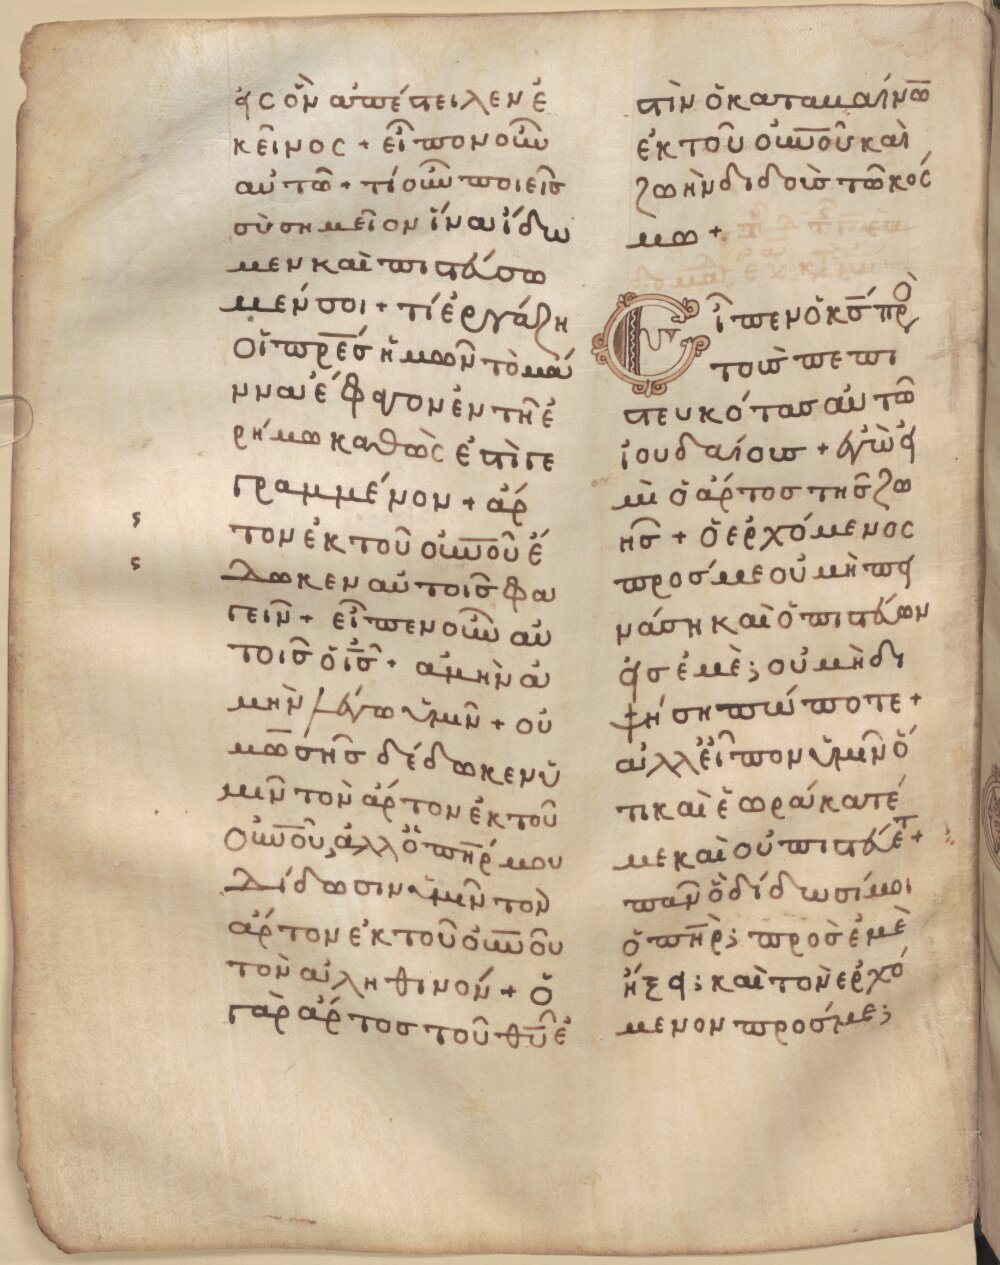 εἰς ὃν ἀπέστειλεν ἐ
κεῖνος + εἶπον οὖν
αὐτῶ + τί οὖν ποιεῖς
σὺ σημεῖον ἵνα ἴδω
μεν καὶ πιστεύσω
μέν σοι + τί ἐργάζη
οἱ πρ̅ε̅ς ἡμῶν τὸ μάν
ννα ἔφαγον ἐν τῆ ἐ
ρήμω καθὼς ἐστὶ γε
γραμμένον + ἄρ
τον ἐκ τοῦ ο̅υ̅ν̅ο̅υ ἔ
δωκεν αὐτοῖς φα
γεῖν + εἶπεν οὖν αὐ
τοῖς ὁ ι̅ς̅ + ἀμὴν ἀ
μὴν λέγω ὑμῖν + οὐ
μω̅σῆς δέδωκεν ὑ
μῖν τὸν ἄρτον ἐκ τοῦ
ο̅υ̅ν̅ο̅υ, ἀλλ ὁ π̅η̅ρ μου
δίδωσιν ὑμῖν τὸν
ἄρτον ἐκ τοῦ ο̅υ̅ν̅ο̅υ
τὸν ἀληθινόν + ὁ
γὰρ ἄρτος τοῦ θ̅υ̅ ἐ
στὶν ὁ καταβαίνω̅
ἐκ τοῦ ο̅υ̅ν̅ο̅υ καὶ
ζωὴν διδοὺς τῶ κόσ
μω +
Εἶπεν ὁ κ̅ς̅ πρὸ
τοὺς πεπι
στευκότας αὐτῶ
ἰουδαίους + ἐγώ εἰ
μὶ ὁ ἄρτος τῆς ζω
ῆς + ὁ ἐρχόμενος
πρός με οὐ μὴ πει
νάση καὶ ὁ πιστεύων
εἰς ἐμὲ; οὐ μὴ δι
ψήση πώποτε +
ἀλλ εἶπον ὑμῖν ὅ
τι καὶ ἑωράκατέ
με καὶ οὐ πιστεύετ +
πᾶν ὃ δίδωσί μοι
ὁ π̅η̅ρ; πρὸς ἐμὲ
ἥξει; καὶ τὸν ἐρχό
μενον πρός με;